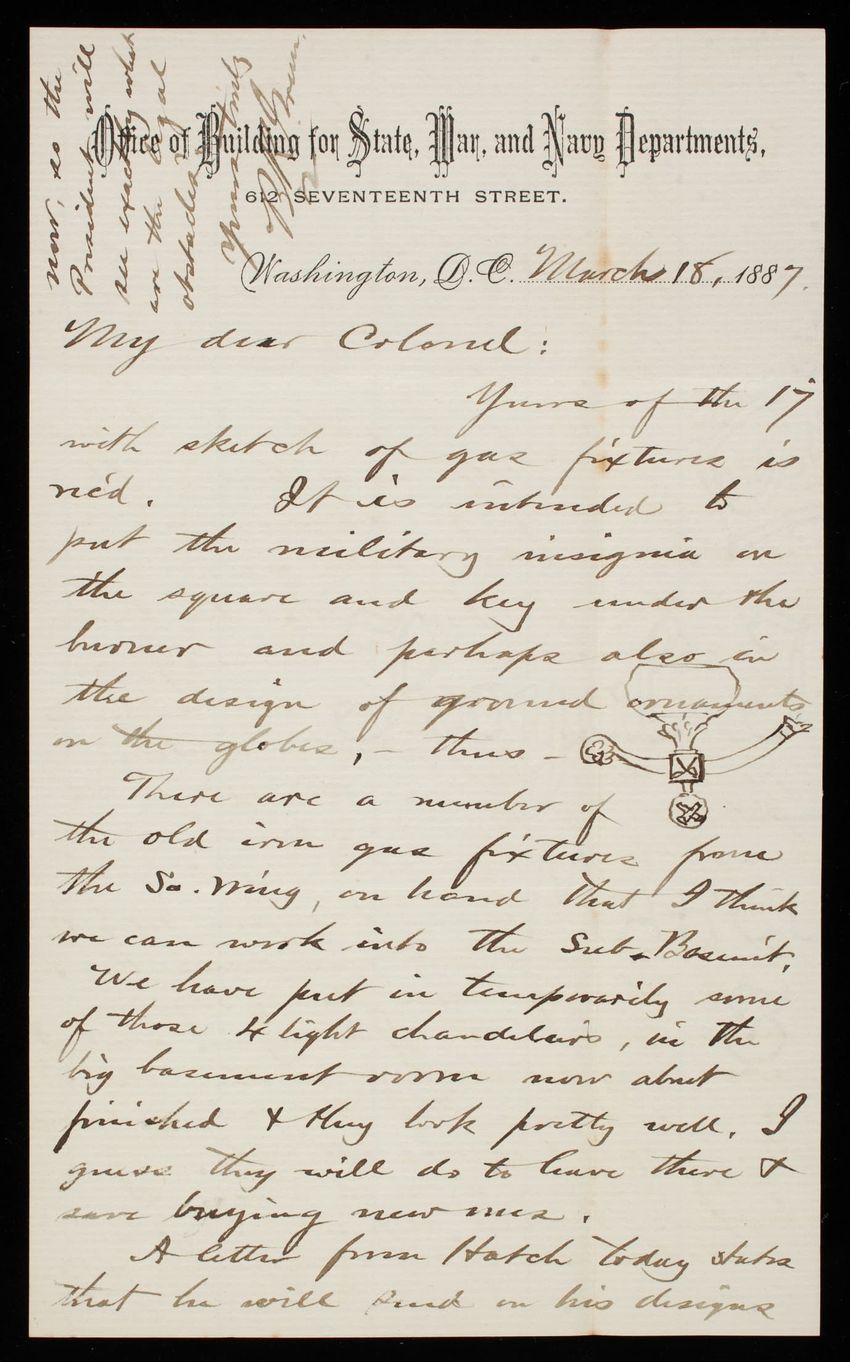 Office of Building for State, War, and Navy Departments,
612 SEVENTEENTH STREET.
Washington, D.C. March 18, 1887.
My dear Colonel:
Yours of the 17
with sketch of gas fixtures is
rec'd. It is intended to
put the military insignia on
the square and key under the
burner and perhaps also in
the design of ground ornaments
on the globes, - thus -
There are a number of
the old iron gas fixtures from
the So. Wing, on hand that I think
we can work into the Sub-Basem't.
We have put in temporarily some
of those 4 light chandeliers, in the
big basement room now about
finished & they look pretty well. I
guess they will do to leave there &
save buying new ones.
A letter from Hatch today states
that he will send on his designs
now, so the
President will
see exactly what
are the legal
obstacles.
Yours truly